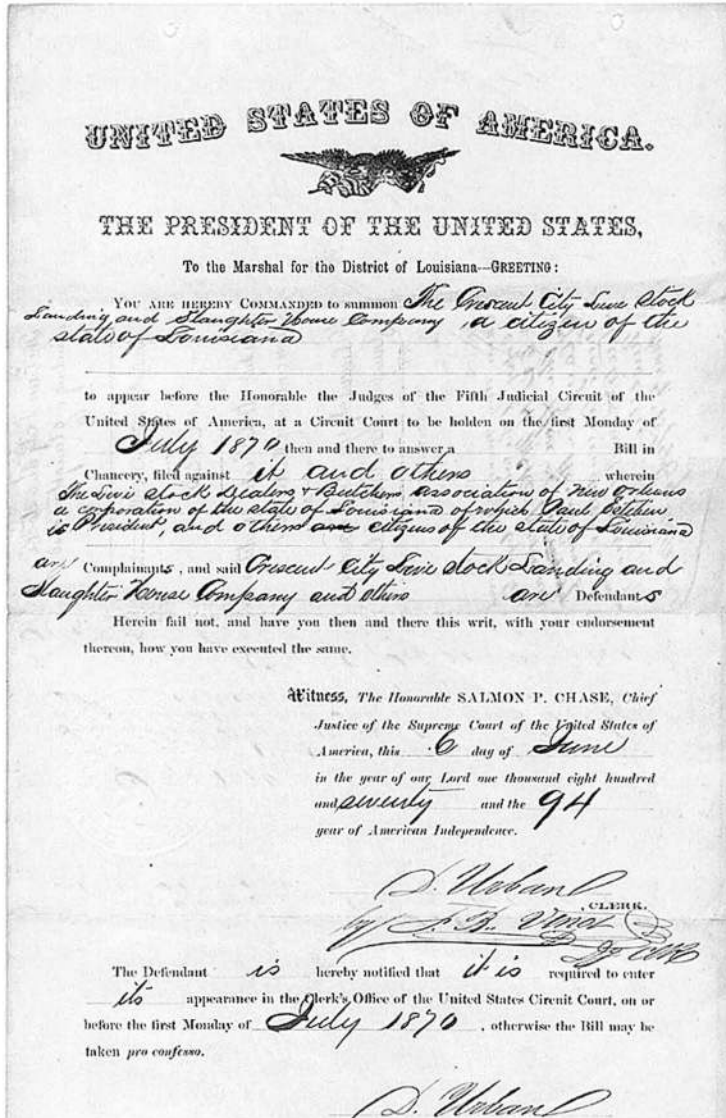 UNITED STATES OF AMERICA.
THE PRESIDENT OF THE UNITED STATES,
To the Marshal for the District of Louisiana—GREETING:
YOU ARE HEREBY COMMANDED to summon The Crescent City Live Stock
Landing and Slaughter House Company, a citizen of the
state of Louisiana
to appear before the Honorable the Judges of the Fifth Judicial Circuit of the
United States of America, at a Circuit Court to be holden on the first Monday of
July 1870 then and there to answer a Bill in
Chancery, filed against it and others wherein
The Live Stock Dealers & Butchers association of New Orleans
a corporation of the state of Louisiana of which Paul
is President, and others are citizens of the state of Louisiana
are Complainants, and said Crescent City Live Stock Landing and
Slaughter House Company and others are Defendants
Herein fail not, and have you then and there this writ, with your endorsement
thereon, how you have executed the same.
Witness, The Honorable SALMON P. CHASE, Chief
Justice of the Supreme Court of the United States of
America, this 6 day of June
in the year of our Lord one thousand eight hundred
and seventy and the 94
year of American Independence.
, CLERK.
by
The Defendant is hereby notified that it is required to enter
its appearance in the Clerk's Office of the United States Circuit Court, on or
before the first Monday of July 1870, otherwise the Bill may be
taken pro confesso.